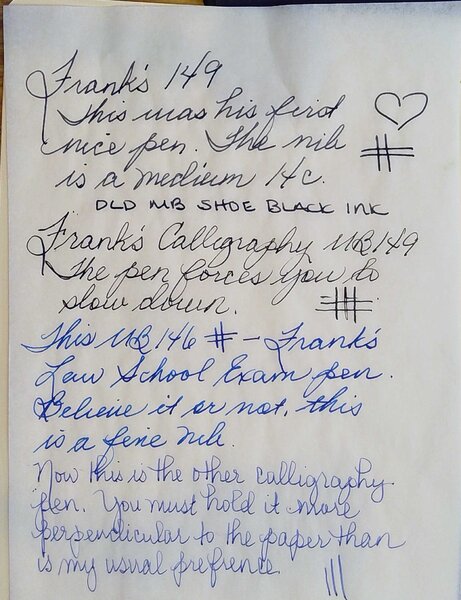 Frank's 149
This was his first
nice pen. The nib
is a medium 14c.
OLD MB SHOE BLACK INK
Frank's Calligraphy MB 149
The pen forces you to
slow down.
This MB 146 # - Frank's
Law School Exam pen.
Believe it or not, this
is a fine nib.
Now this is the other calligraphy
pen. You must hold it more
perpendicular to the paper than
is my usual prefrence